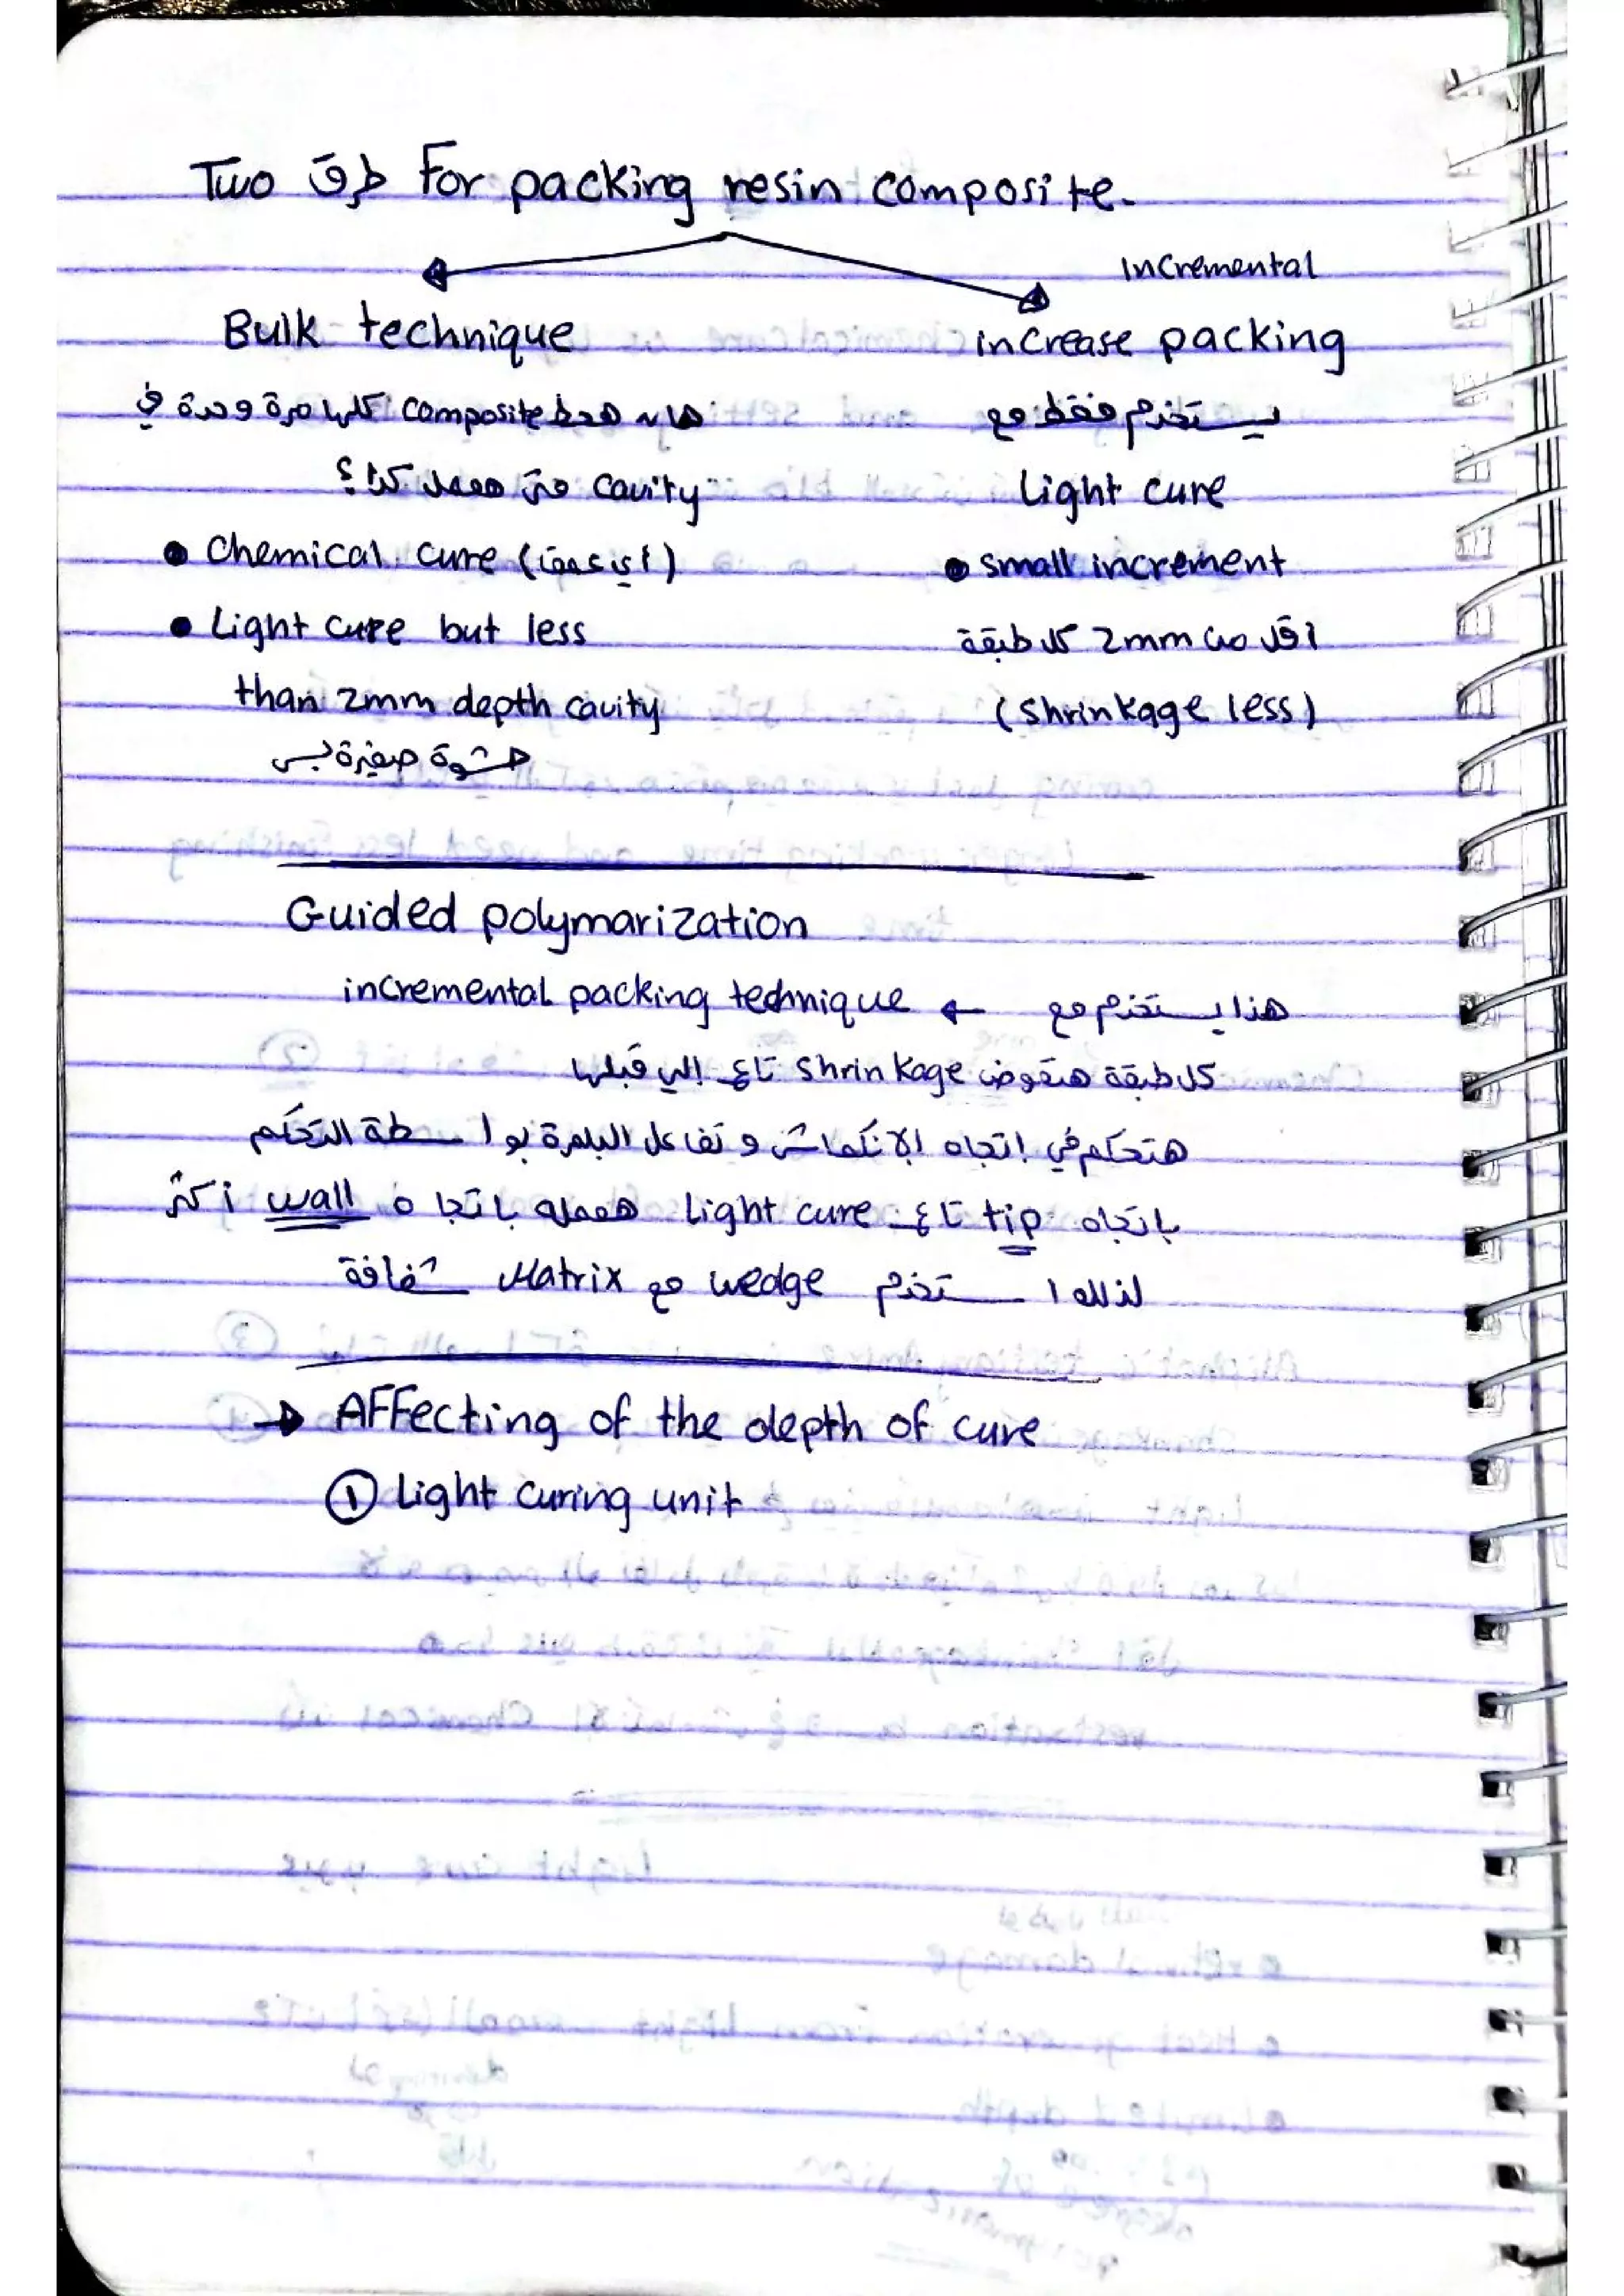 Two طرق For packing resin composite.
Incremental
Bulk technique
increase packing
هحط composite كلها مرة وحدة في
cavity متى هعمل كذا؟
• Chemical cure (أي عمق)
• Light cure but less
than 2mm depth cavity
حشوة صغيرة بس
يستخدم فقط مع
Light cure
• small increment
اقل من 2mm كل طبقة
(Shrinkage less)
Guided polymarization
هذا يستخدم مع ← incremental packing technique
كل طبقة هتعوض shrinkage تاع إلي قبلها
هتحكم في إتجاه الإنكماش و تفاعل البلمرة بواسطة التحكم
باتجاه tip تاع Light cure هعمله باتجاه wall أكثر
لذلك استخدم wedge مع Matrix شفافة
→ AFFecting of the depth of cure
① Light curing unit